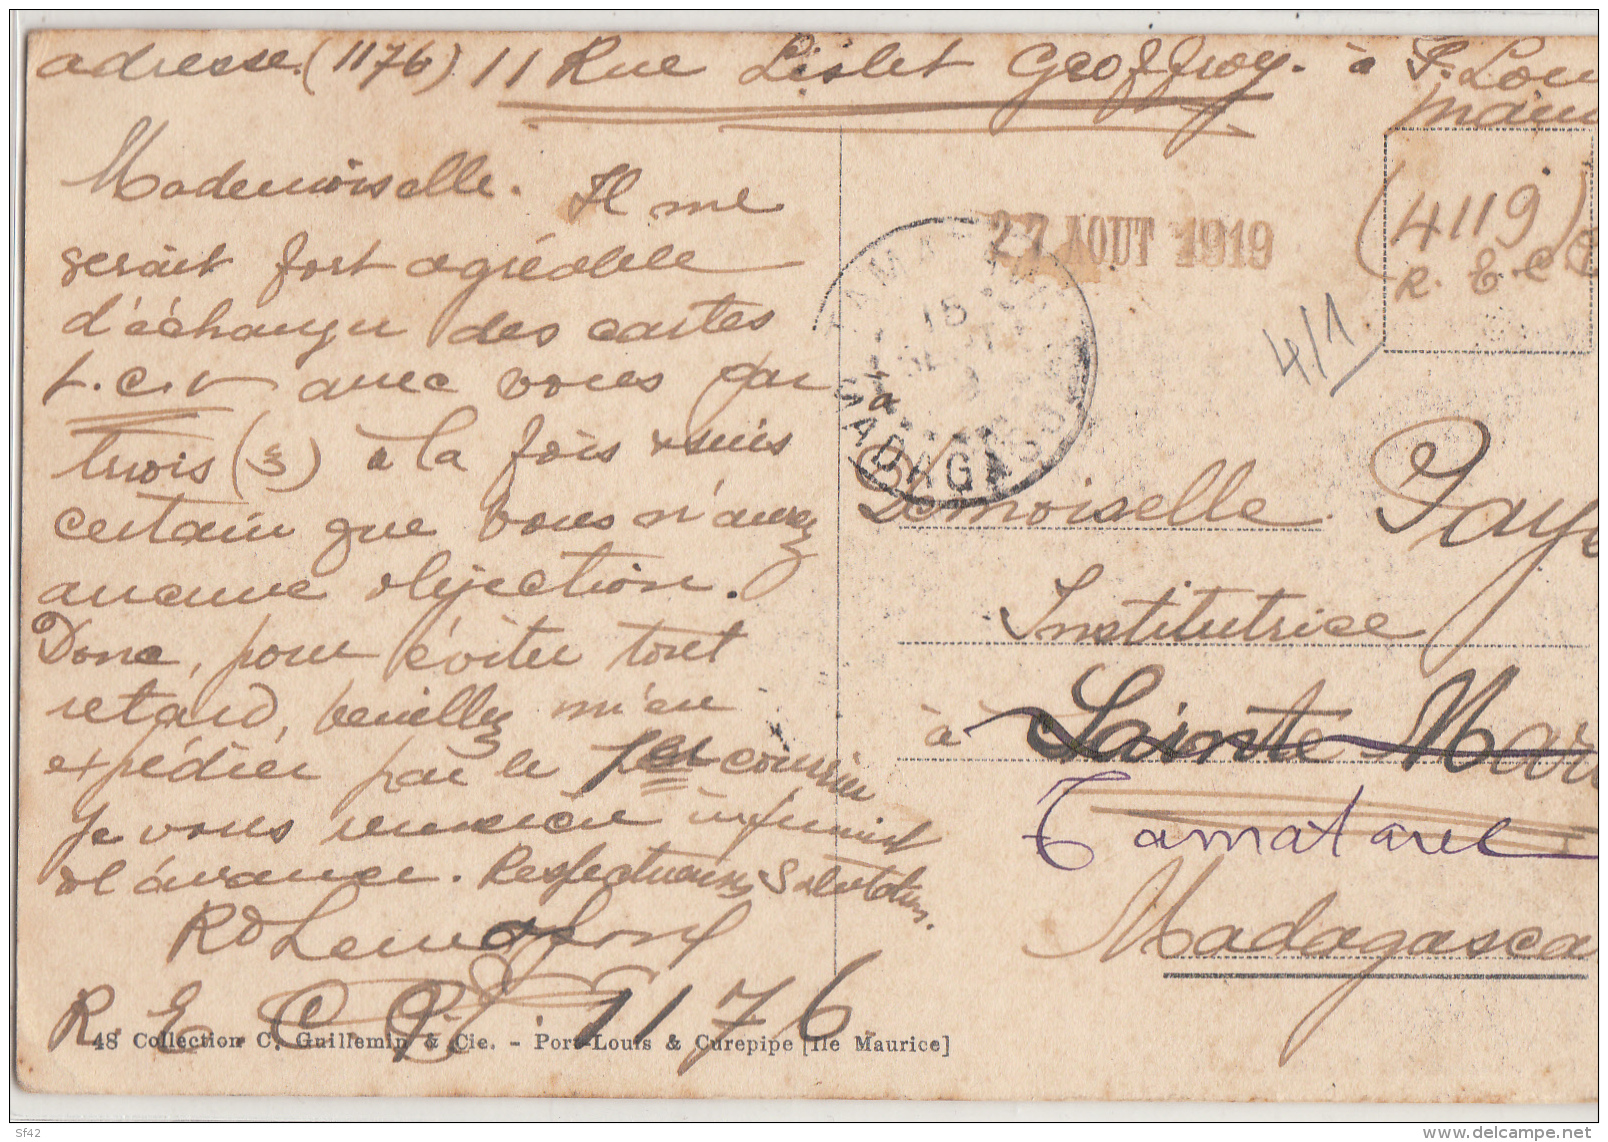 adresse (1176) 11 Rue Lislet Geoffroy. à P. Lou
mau
Mademoiselle. Il me
serait fort agréable
d'échanger des cartes
t.c.v avec vous par
trois (3) à la fois & suis
certain que vous n'aurez
aucune objection.
Donc, pour éviter tout
retard, veuillez m'en
expédier par le 1er courrier
Je vous remercie infiniment
d'avance. Respectueuses Salutations.
R. E. C. 1176
48 Collection C. Guillemin & Cie. - Port-Louis & Curepipe [Ile Maurice]
27 AOUT 1919
TAMATAVE
15 SEPT
MADAGASCAR
(4119)
R. E. C
4/1
à
Demoiselle Paye
Institutrice
à Sainte Mar
Tamatave
Madagasca
Sf42
delcampe.net